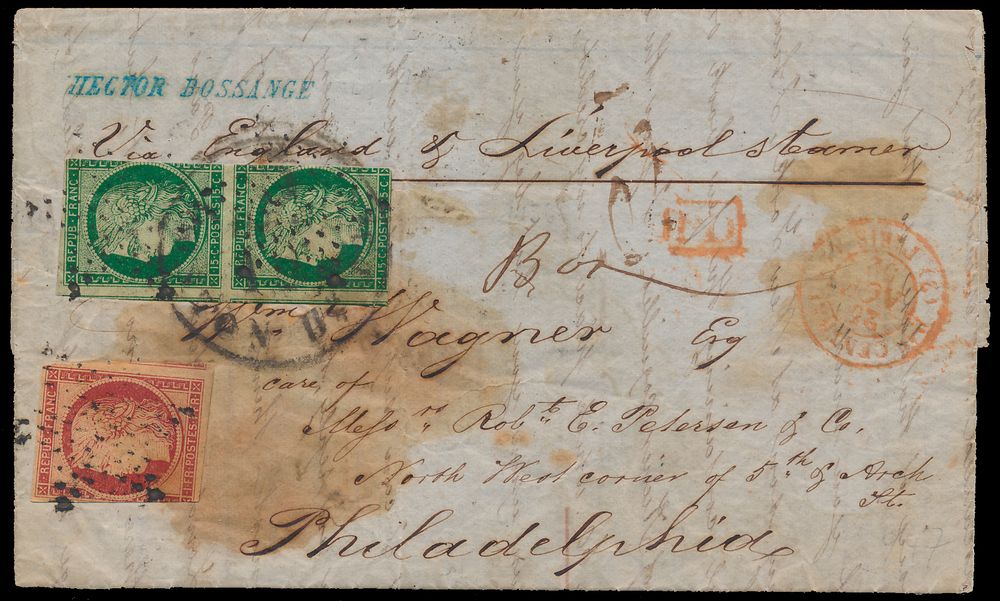 HECTOR BOSSANGE
Via England & Liverpool steamer
REPUB·FRANC· 15·C·POSTES·15·C·
REPUB·FRANC· 15·C·POSTES·15·C·
Wagner Esq
care of
Messrs Robt E. Petersen & Co.
North West corner of 5th & Arch
St.
Philadelphia
REPUB·FRANC· 1·FR·POSTES·1·FR·